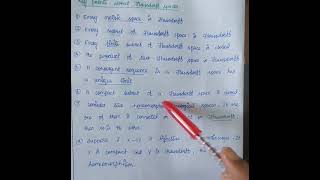 Key points about Hausdorff spaces
① Every metric space is Hausdorff
② Every subset of Hausdorff space is Hausdorff
③ Every finite subset of Hausdorff space is closed
④ The product of two Hausdorff space is Hausdorff
⑤ A convergent sequence in a Hausdorff space has
a unique limit
⑥ A compact subset of a Hausdorff space is closed
⑦ Consider two homeomorphic topological spaces. If
one of them is compact or connected or Hausdorff
⑧ Suppose f: X → Y is bijective
X is compact and Y is Hausdorff
homeomorphism